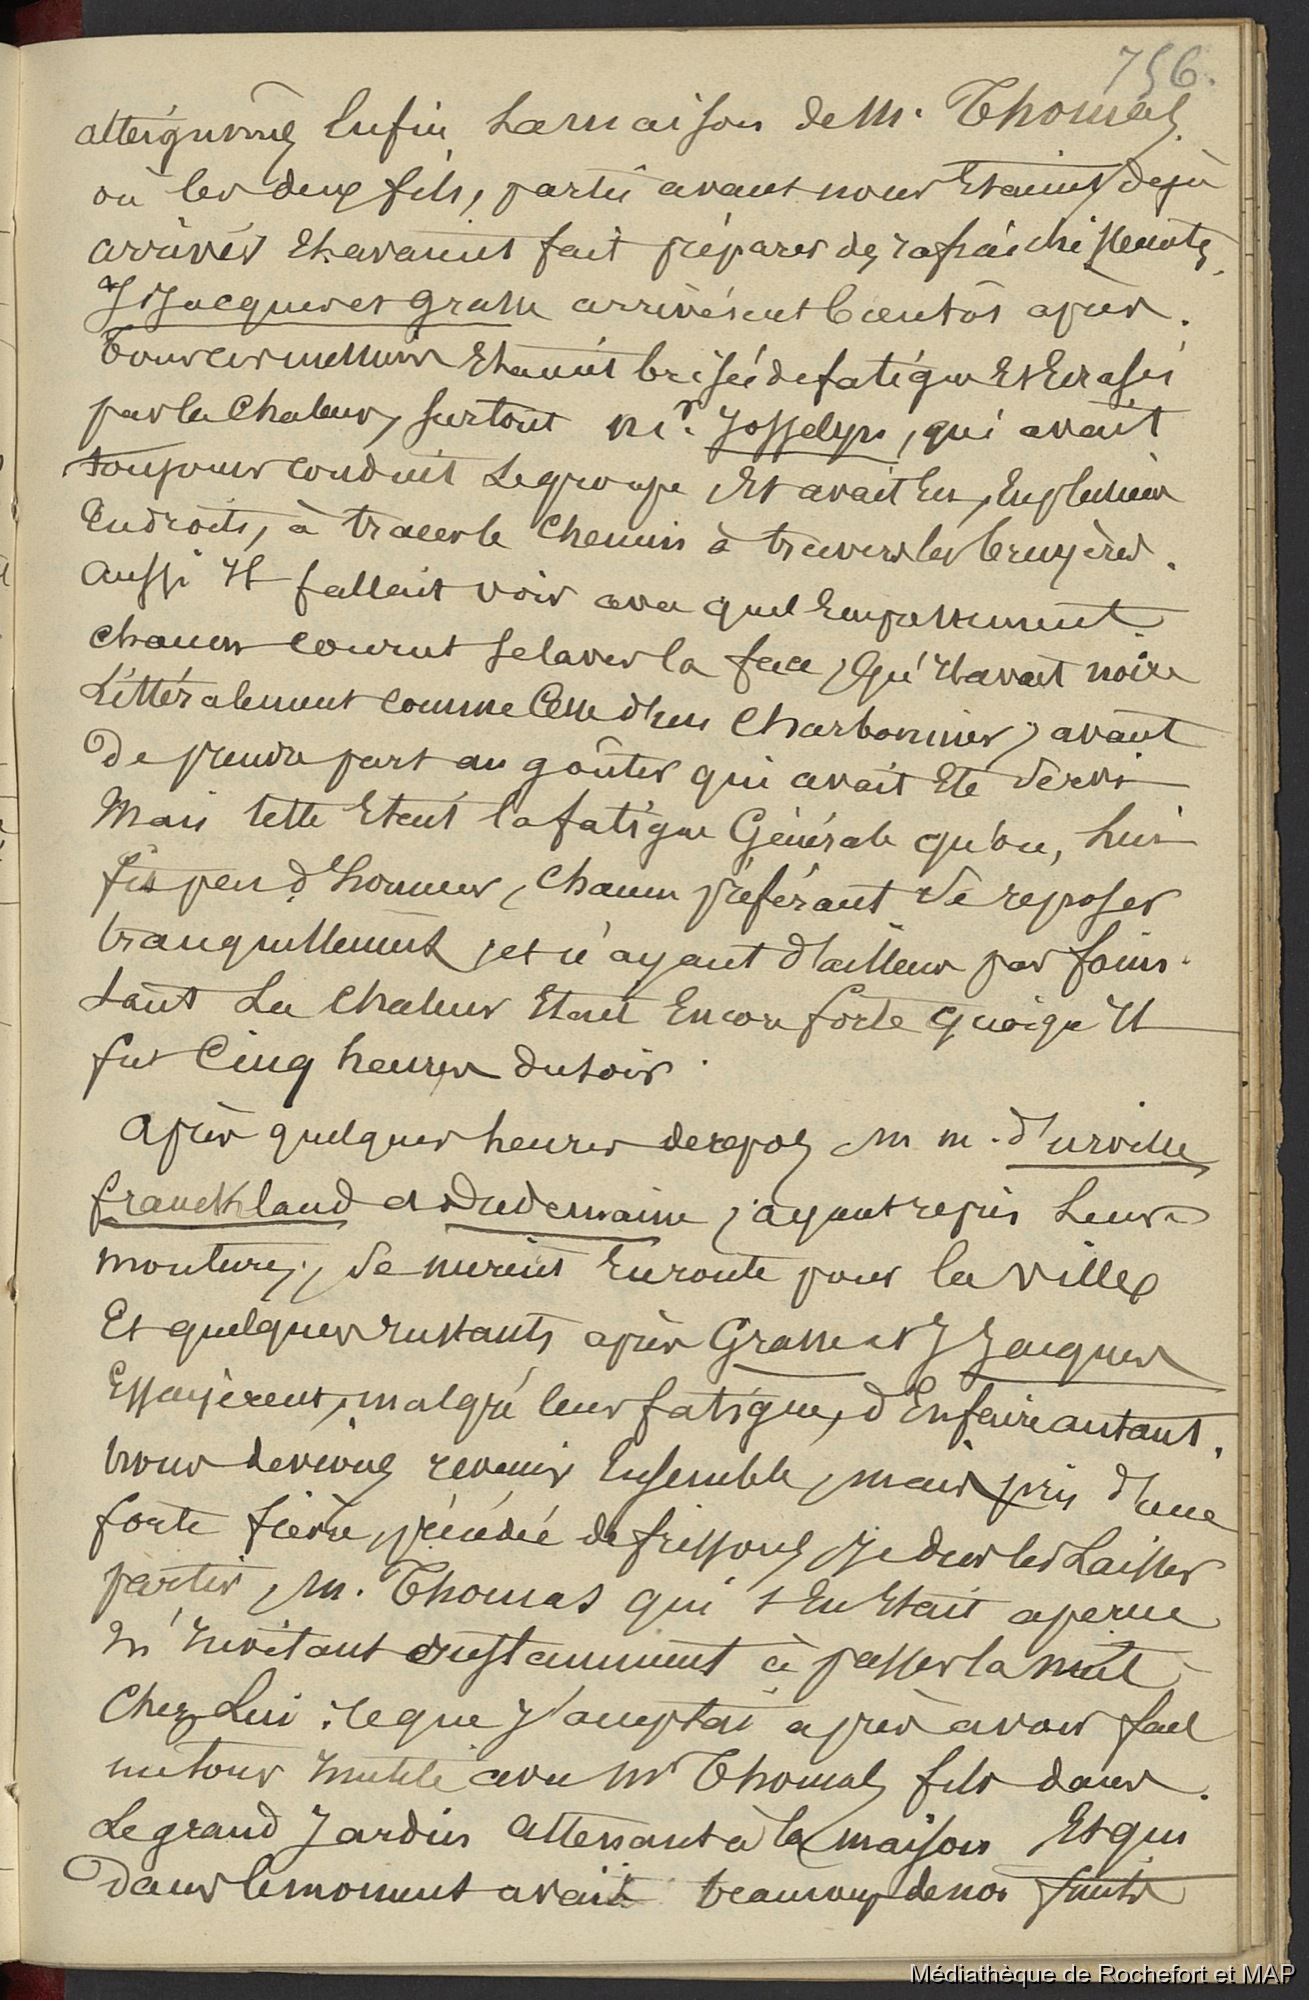 756.
atteignimes Enfin La maison de M. Thomas
où les deux fils, partis avant nous Etaient déjà
arrivés Et avaient fait préparer des rafraichissements,
Js Jacques et Grasse arrivèrent bientôt après.
Tous ces messieurs Etaient brisés de fatigue Et Ecrasés
par la Chaleur, surtout Mr. Josselyn, qui avait
toujours conduit Le groupe Et avait Eu, En plusieurs
Endroits, à tracer le Chemin à travers les bruyères.
Aussi Il fallait voir avec quel Empressement
chacun courut se laver la face, qu'Il avait noire
Littéralement comme Celle d'un Charbonnier, avant
De prendre part au goûter qui avait Eté servi
Mais telle Etait la fatigue Générale qu'on, lui
fis peu d'honneur, Chacun préférant se reposer
tranquillement, et n'ayant d'ailleurs pas faim.
tant La Chaleur Etait Encore forte quoiqu'Il
fut Cinq heures du soir.
Après quelques heures de repos M M. d'urville
franckland et Dudemaine, ayant repris Leurs
montures, se mirent En route pour la ville
Et quelques Instants après Grasse et J Jacques
Essayèrent, malgré leur fatigue, d'En faire autant.
nous devions revenir Ensemble, mais pris d'une
forte fièvre, précédée de frissons, je dus les Laisser
partir, M. Thomas qui s'En Etait aperçu
m'Invitant instamment à passer la nuit
Chez Lui; ce que J'acceptai après avoir fait
un tour Inutile avec Mr Thomas fils dans
Le grand Jardin attenant à la maison Et qui
Dans le moment avait beaucoup de nos fruits
Médiathèque de Rochefort et MAP